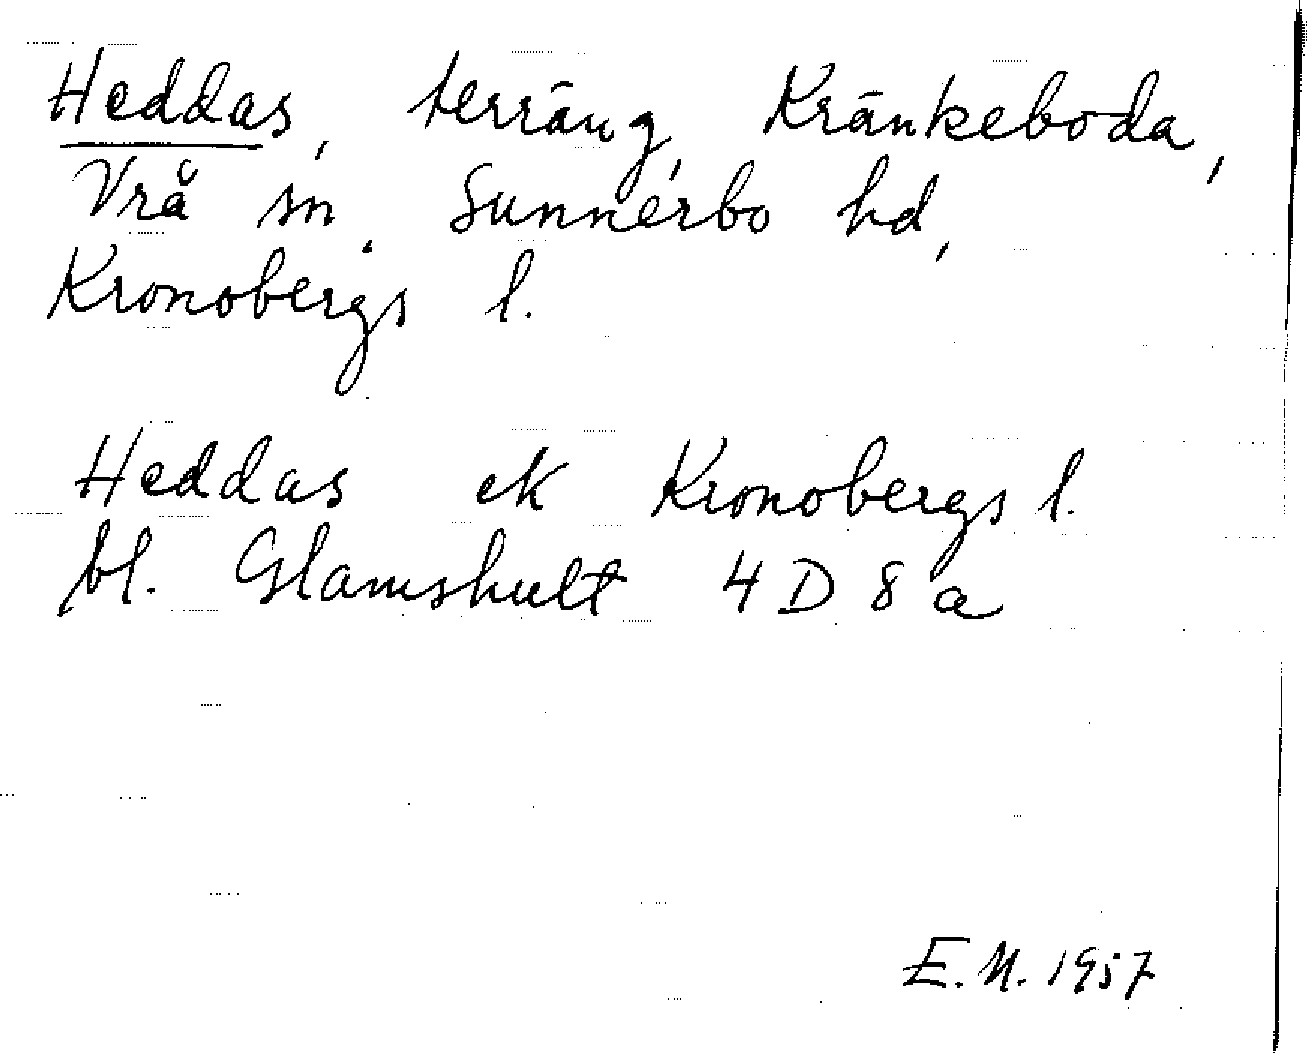 Heddas, terräng, Kränkeboda,
Vrå sn, Sunnerbo hd,
Kronobergs l.
Heddas ek Kronobergs l.
bl. Glamshult 4 D 8 a
E.N. 1957